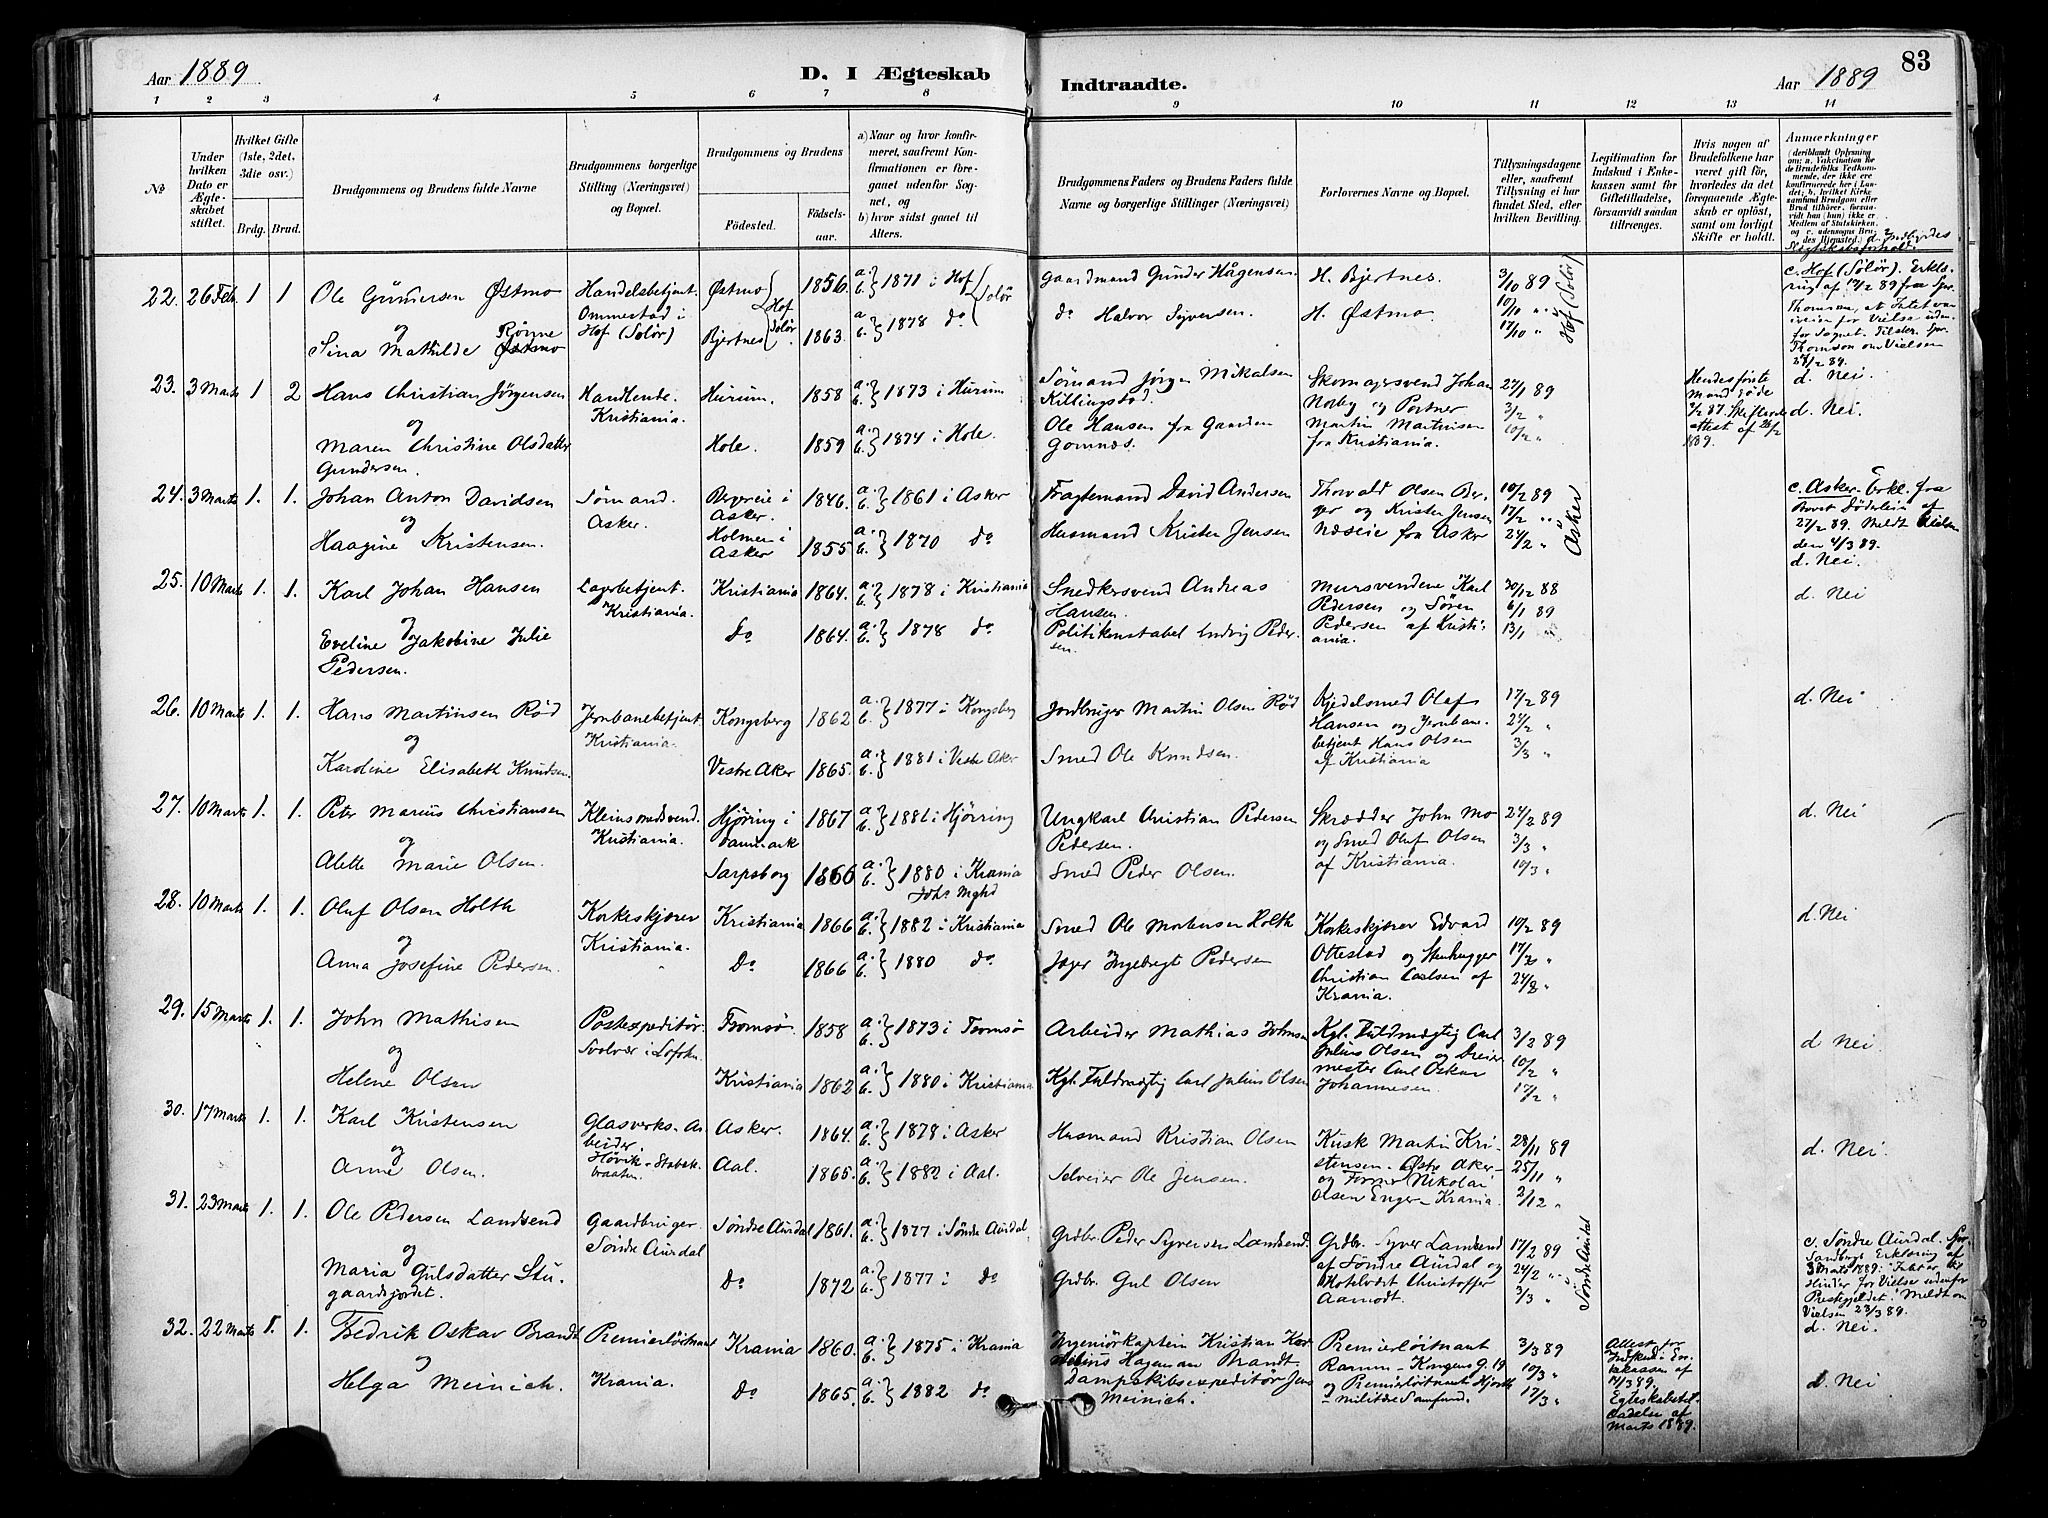 Aar 1889
D. I Ægteskab
Indtraadte.
Aar 1889
83
1 2 3 4 5 6 7 8 9 10 11 12 13 14
No
Under hvilken Dato er Ægteskabet stiftet.
Hvilket Gifte (1ste, 2det, 3die osv.)
Brdg. Brud.
Brudgommens og Brudens fulde Navne
Brudgommens borgerlige Stilling (Næringsvei) og Bopæl.
Brudgommens og Brudens
Fødested.
Fødselsaar.
a) Naar og hvor konfirmeret, saafremt Konfirmationen er foregaaet udenfor Sognet, og
b) hvor sidst gaaet til Alters.
Brudgommens Faders og Brudens Faders fulde Navne og borgerlige Stillinger (Næringsvei)
Forlovernes Navne og Bopæl.
Tillysningsdagene eller, saafremt Tillysning ei har fundet Sted, efter hvilken Bevilling.
Legitimation for Indskud i Enkekassen samt for Giftetilladelse, forsaavidt saadan tiltrænges.
Hvis nogen af Brudefolkene har været gift før, hvorledes da det foregaaende Ægteskab er opløst, samt om lovligt Skifte er holdt.
Anmærkninger
22. 26 Feb. 1 1 Ole Gundersen Østmo Handelsbetjent. Ommestad i Hof (Solør) Østmo Hof Solør 1856. a. b. 1871 i Hof Solør Gaardmand Gunder Hågensen. H. Bjertnes. 3/10 89 Hof (Solør)
og
Sina Mathilde Rönne Bjertnes 1863. a b. 1878 do do Halvor Syversen. H. Østmo. 10/10 " 17/10 "
c. Hof (Solør). Erklæring af 17/2 89 fra
23. 3 Marts 1 2 Hans Christian Jörgensen Handlende. Kristiania. Hurum. 1858 a. b. 1873 i Hurum Sömand Jörgen Mikalsen Killingstad. Skomagersvend Johan Norby og Portner Martin Martinsen fra Kristiania. 27/1 89 3/2 " 10/2 " Hendes förste Mand döde d. Nei.
og
Maren Christine Olsdatter Gundersen. Hole. 1859 a. b. 1874 i Hole. Ole Hansen fra Gaarden Gomnæs. d. Nei.
24. 3 Marts 1. 1. Johan Anton Davidsen Sömand. Asker. Bergereie i Asker. 1846. a. b. 1861 i Asker Fragtemand David Andersen Thorvald Olsen Berger og Kristen Jensen Næseie fra Asker 10/2 89 17/2 " 24/2 " Asker
og
Haagine Kristensen. Holmen i Asker 1855 a. b. 1870 do Husmand Kristen Jensen
c. Asker. Erkl. fra
27/2 89. Meldt Vielsen den 4/3 89. d. Nei.
25. 10 Marts 1. 1. Karl Johan Hansen Lagerbetjent. Kristiania. Kristiania 1864. a. b. 1878 i Kristiania Snedkersvend Andreas Hansen. Mursvendene Karl Pedersen og Sören Pedersen af Kristiania. 30/12 88 6/1 89 13/1 d. Nei
og
Eveline Jakobine Julie Pedersen. Do 1864. a. b. 1878 do Politikonstabel Ludvig Pedersen.
26. 10 Marts 1. 1. Hans Martinsen Röd Jernbanebetjent Kristiania. Kongsberg 1862 a. b. 1877 i Kongsberg Jordbruger Martin Olsen Röd Kjedelsmed Olaf Hansen og Jernbanebetjent Hans Olsen af Kristiania 17/2 89 24/2 " 3/3 " d. Nei
og
Karoline Elisabeth Knudsen. Vestre Aker 1865. a. b. 1881 i Vestre Aker Smed Ole Knudsen.
27. 10 Marts 1. 1. Peter Marius Christiansen Kleinsmedsvend. Kristiania. Hjørring i Danmark 1867 a. b. 1881 i Hjørring Ungkarl Christian Pedersen Pedersen. Skrædder John Mo og Smed Oluf Olsen af Kristiania. 24/2 89 3/3 " 10/3 " d. Nei
og
Alette Marie Olsen. Sarpsborg 1860 a. b. 1880 i Krania Joh. Mghd Smed Peder Olsen.
28. 10 Marts 1. 1. Oluf Olsen Holth Korkeskjærer Kristiania. Kristiania 1866 a. b. 1882 i Kristiania Smed Ole Mortensen Holth Korkeskjærer Edvard Ottestad og Stenhugger Christian Carlsen af Krania. 10/2 89 17/2 " 24/2 " d. Nei
og
Anna Josefine Pedersen. Do 1866 a. b. 1880 do Jæger Ingebrigt Pedersen
29. 15 Marts 1. 1. John Mathisen Postexpeditör. Svolvær i Lofoten. Tromsø. 1858 a. b. 1873 i Tromsø Arbeider Mathias Johnsen Kgl. Fuldmægtig Carl Julius Olsen og Dreiermester Carl Oskar Johannesen. 3/2 89 10/2 " 17/2 " d Nei.
og
Helene Olsen Kristiania 1862 a. b. 1880 i Kristiania Kgl. Fuldmægtig Carl Julius Olsen
30. 17 Marts 1. 1. Karl Kristensen Glasverks-Arbeider Høvik - Stabekbraaten. Asker. 1864. a. b. 1878 i Asker Husmand Kristian Olsen Kusk Martin Kristensen. Østre Aker - og Former Nikolai Olsen Enger - Krania. 28/11 89 25/11 " 2/12 " d. Nei.
og
Anne Olsen. Aal. 1865. a. b. 1882 i Aal. Selveier Ole Jensen.
31. 23 Marts 1. 1. Ole Pedersen Landsend Gaardbruger. Søndre Aurdal Søndre Aurdal 1861. a. b. 1877 i Søndre Aurdal. Grdbr. Peder Syversen Landsend. Grdbr. Syver Landsend af Søndre Aurdal og Hotelvært Christoffer Aamodt. 17/2 89 24/2 " 3/3 " Søndre Aurdal
og
Maria Gulsdatter Stugaardsjordet. Do 1872 a. b. 1877 i do Grdbr. Gul Olsen
c. Søndre Aurdal. Erklæring af 3 Marts 1889: Intet er til Hinder for Vielse udenfor Prestegjeldet. Meldt om Vielsen 23/3 89. d. Nei.
32. 22 Marts 1. 1. Fredrik Oskar Brandt Premierløitnant Krania. Krania 1860. a. b. 1875 i Krania Ingeniörkaptein Kristian Hageman Brandt. Premierløitnant - Kongens G. 19 og Premierløitnant Hjorth - militære Samfund. 3/3 89 10/3 " 17/3 " Attest for Indskud i Enkekassen af 14/3 89. Egteskabstilladelse af Marts 1889.
og
Helga Meinich. do 1865. a. b. 1882 do Dampskibsexpeditör Jens Meinich. d. Nei